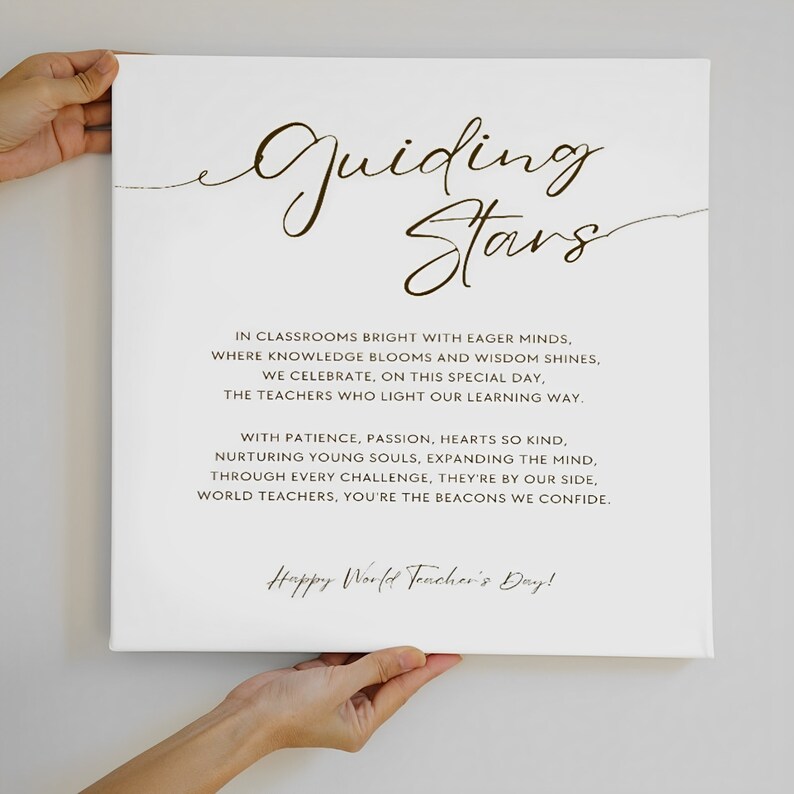 Guiding
Stars
IN CLASSROOMS BRIGHT WITH EAGER MINDS,
WHERE KNOWLEDGE BLOOMS AND WISDOM SHINES,
WE CELEBRATE, ON THIS SPECIAL DAY,
THE TEACHERS WHO LIGHT OUR LEARNING WAY.
WITH PATIENCE, PASSION, HEARTS SO KIND,
NURTURING YOUNG SOULS, EXPANDING THE MIND,
THROUGH EVERY CHALLENGE, THEY'RE BY OUR SIDE,
WORLD TEACHERS, YOU'RE THE BEACONS WE CONFIDE.
Happy World Teacher's Day!